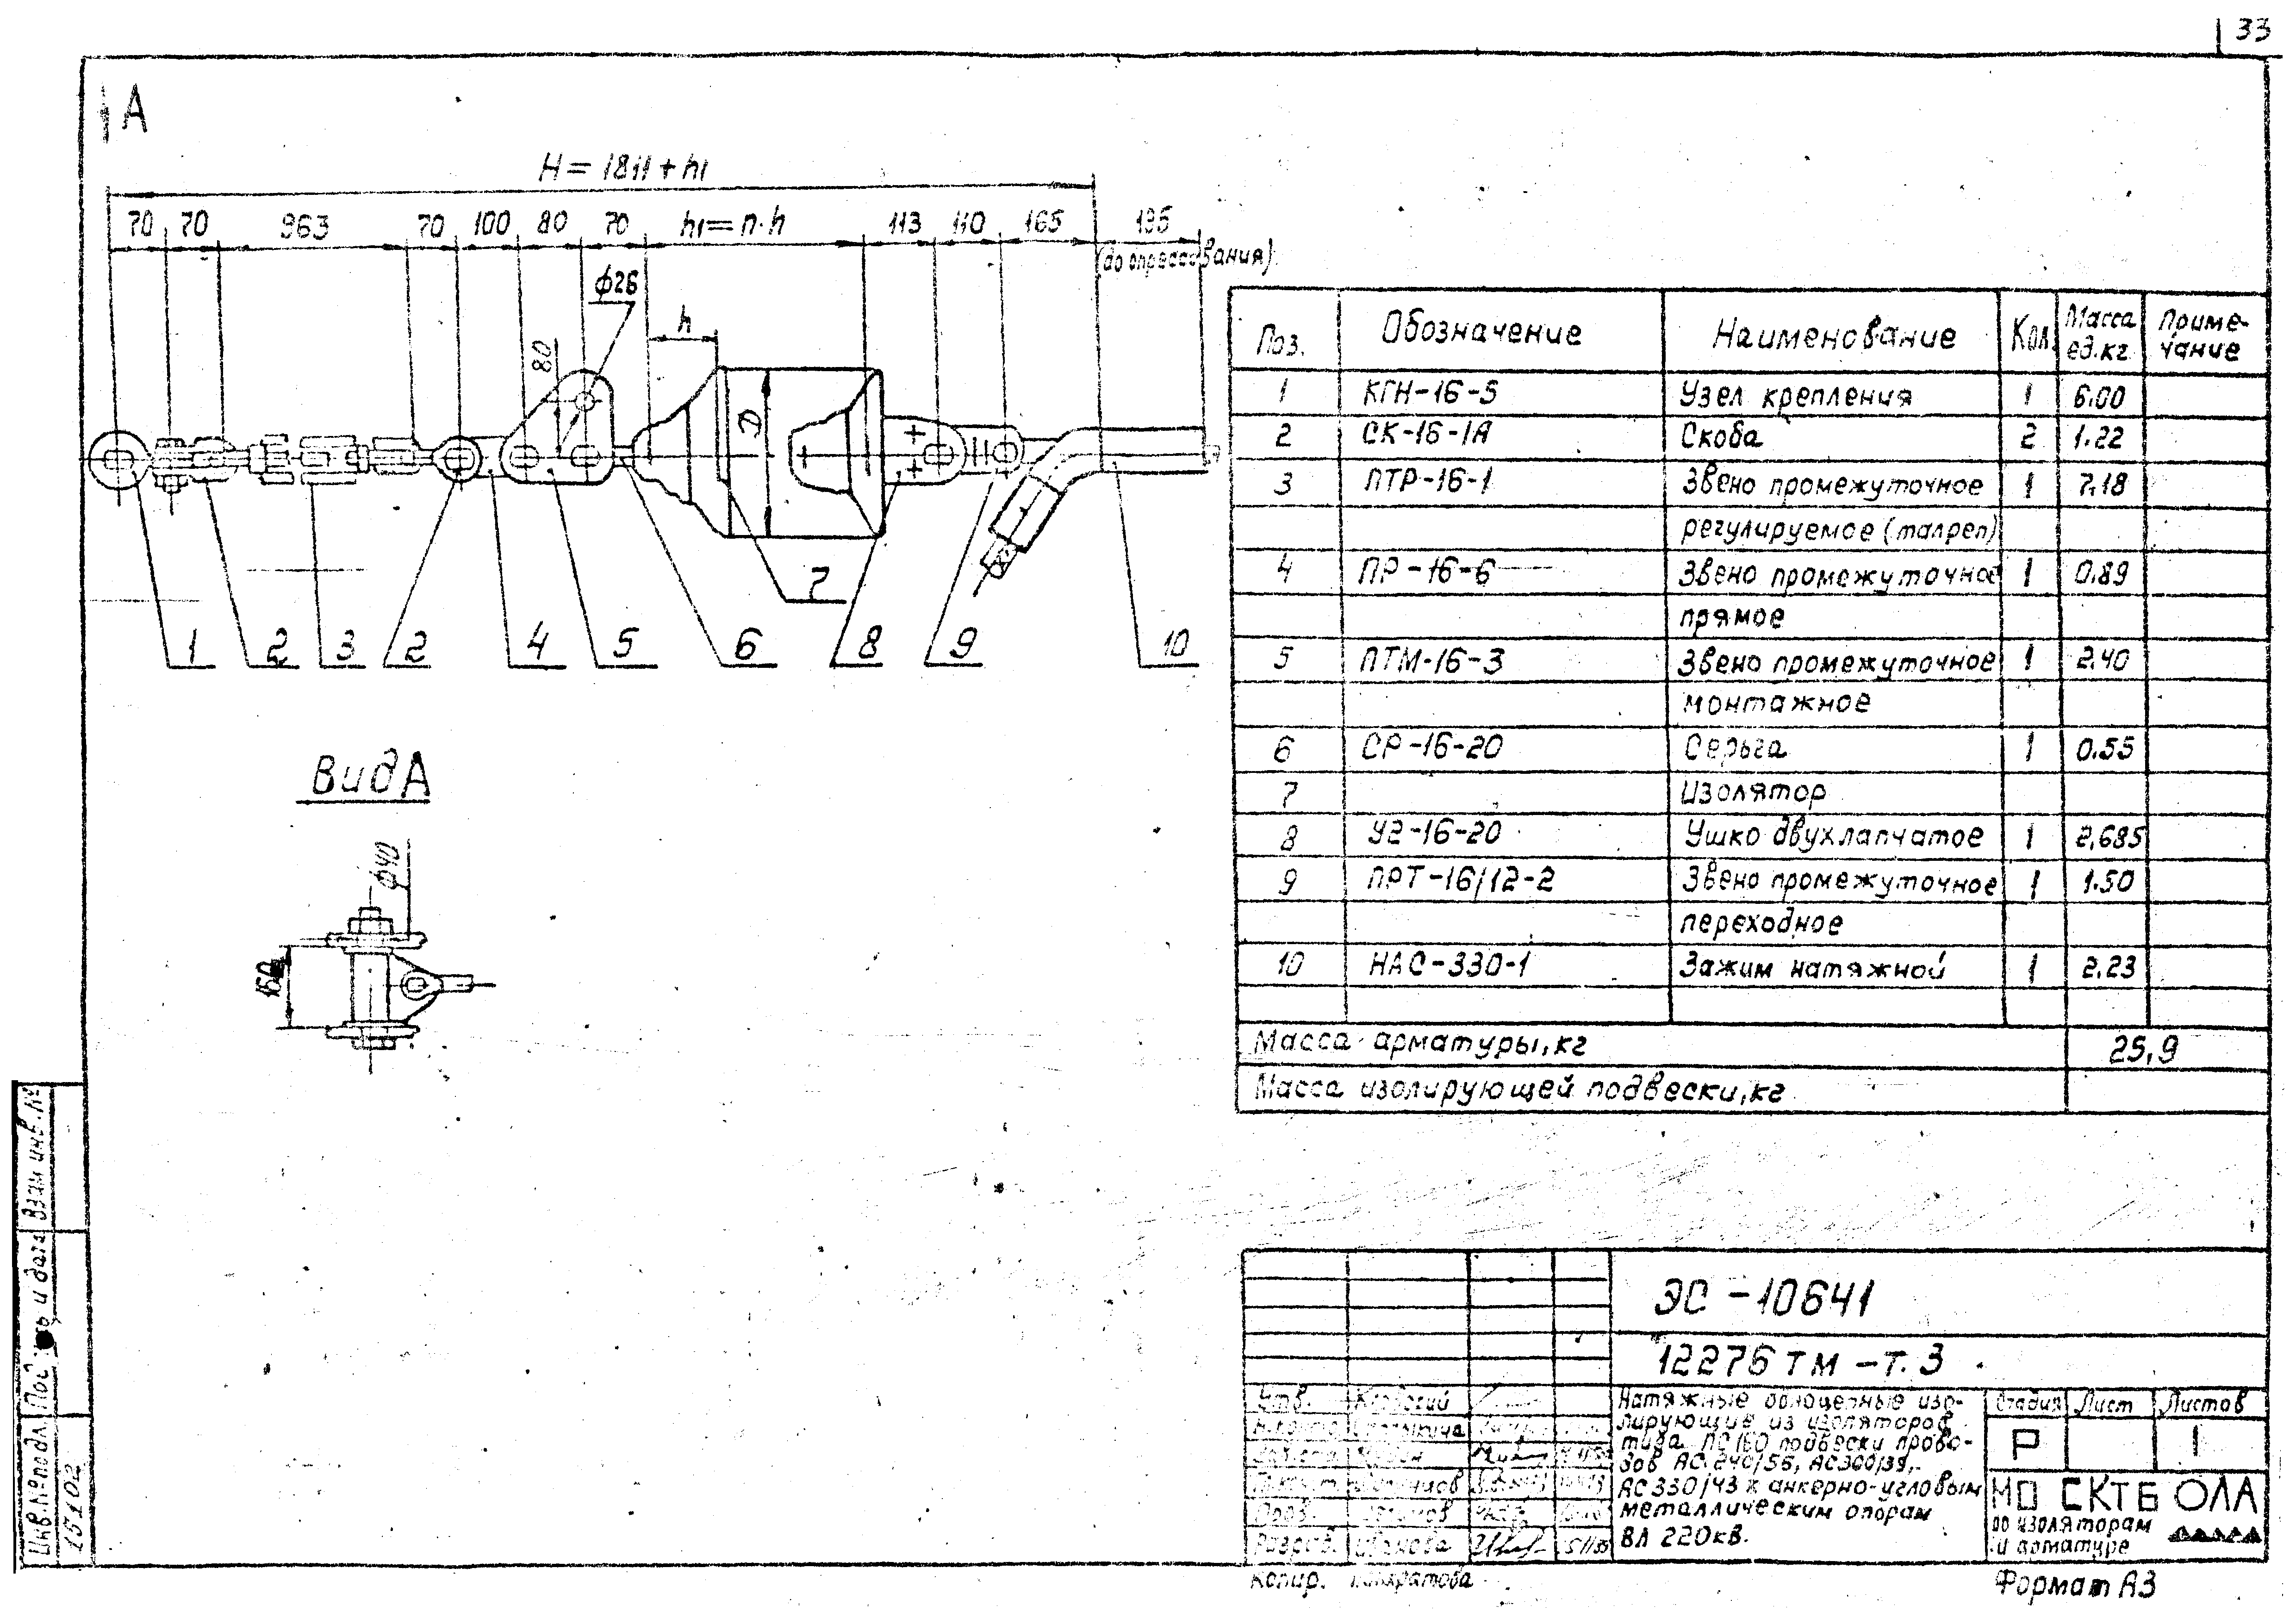 33
А
H = 1811 + h1
70 70 963 70 100 80 70 h1 = n·h 113 110 165 195
(до опрессования)
ф26
h
80
D
7
1 2 3 2 4 5 6 8 9 10
Вид А
ф40
160
Поз. Обозначение Наименование Кол. Масса ед.кг Приме-чание
1 КГН-16-5 Узел крепления 1 6.00
2 СК-16-1А Скоба 2 1.22
3 ПТР-16-1 Звено промежуточное 1 7.18
регулируемое (талреп)
4 ПР-16-6 Звено промежуточное 1 0.89
прямое
5 ПТМ-16-3 Звено промежуточное 1 2.40
монтажное
6 СР-16-20 Серьга 1 0.55
7 Изолятор
8 У2-16-20 Ушко двухлапчатое 1 2,685
9 ПРТ-16/12-2 Звено промежуточное 1 1.50
переходное
10 НАС-330-1 Зажим натяжной 1 2.23
Масса арматуры, кг 25,9
Масса изолирующей подвески, кг
ЭС-10641
12276 тм-т.3
Натяжные одноцепные изо-
лирующие из изоляторов
типа ПС160 подвески прово-
дов АС 240/56, АС300/39,
АС330/43 к анкерно-угловым
металлическим опорам
ВЛ 220кВ.
Стадия Лист Листов
Р 1
МО СКТБ ОЛА
по изоляторам
и арматуре
Утв.
Разраб. Иванова
Копир.
Формат А3
Взам инв. №
и дата
Инв. № подл.
15102